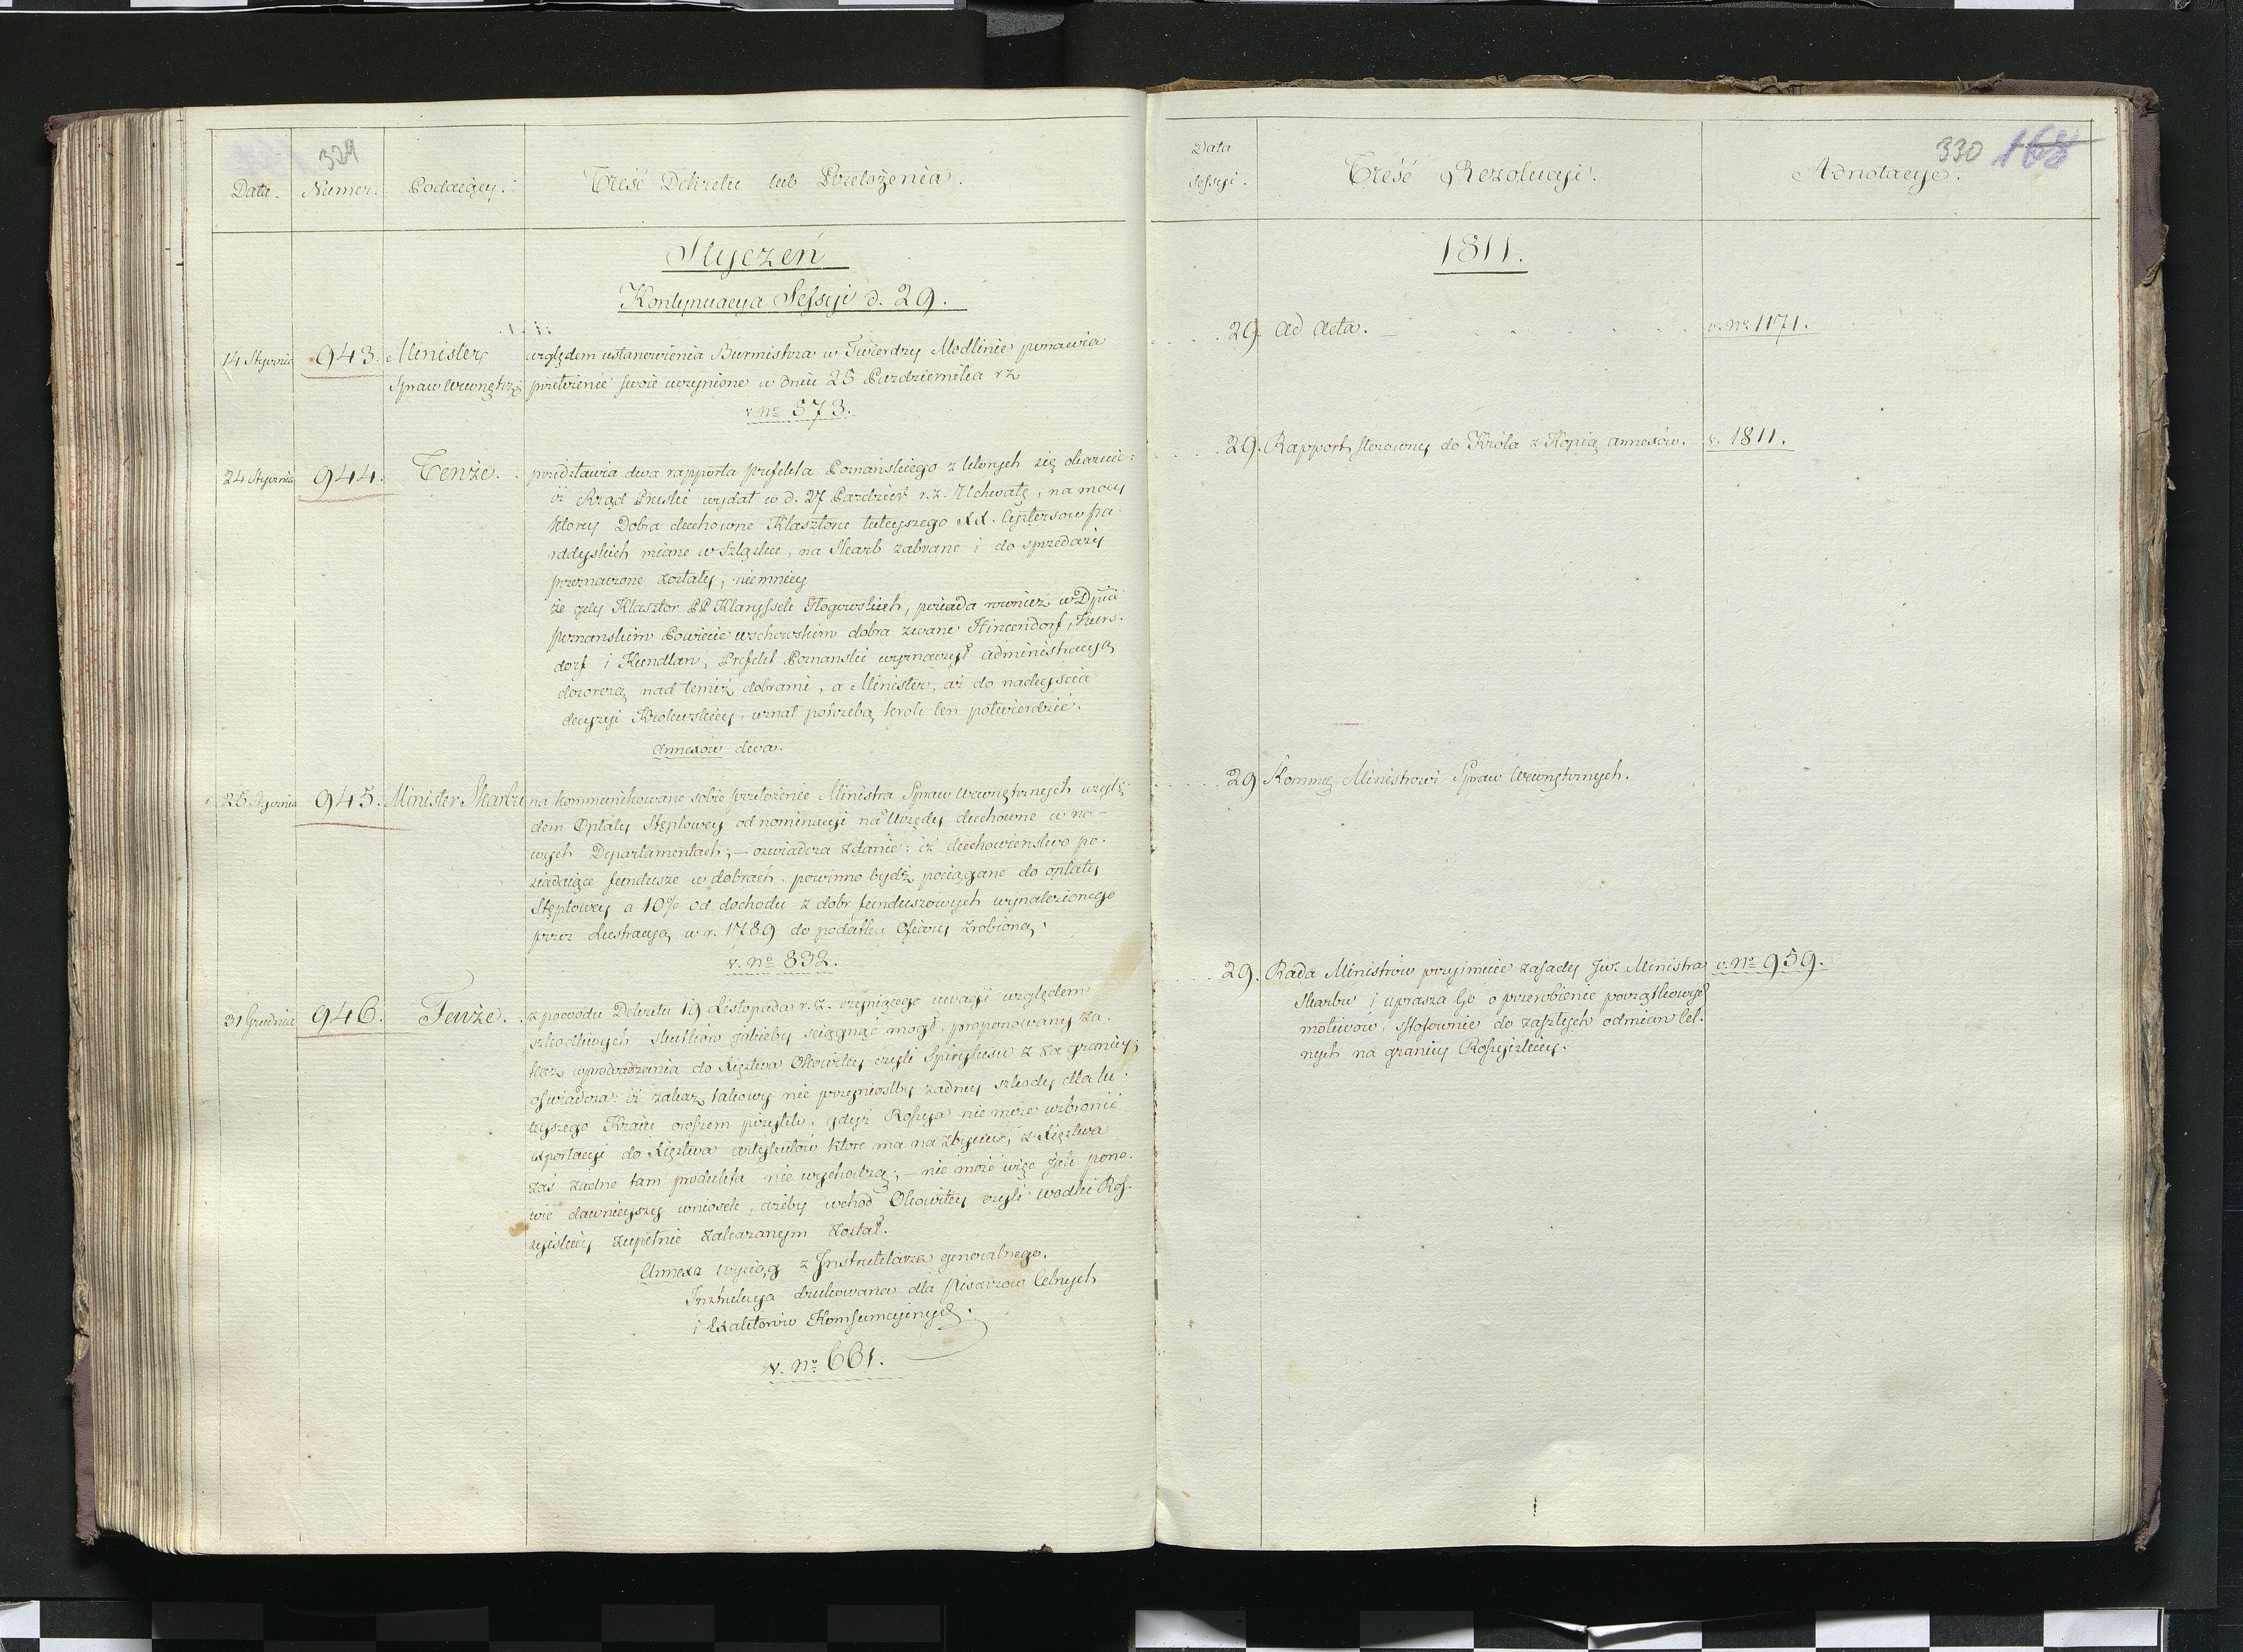 329
Data.
Numer.
Podaiący.
Treść Dekretu lub Przełożenia.
Styczeń
Kontynuacya Sessyi d. 29.
14 Stycznia
943.
Minister
Spraw Wewnętrz:
względem ustanowienia Burmistrza w Twierdzy Modlinie ponawia
przełożenie swoie uczynione w dniu 25 Pazdziernika r z
v no 373.
24 Stycznia
944.
Tenże.
przedstawia dwa rapporta prefekta Poznanskiego z ktorych się okazuie:
iż Rząd Pruski wydał w d. 27 Pazdzier r. z. Uchwałę, na mocy
ktorey Dobra duchowne Klasztoru tuteyszego XX. Cystersow pa-
radyskich miane w Szląsku, na Skarb zabrane i do sprzedaży
przeznaczone zostały, niemniey
że gdy Klasztor PP Klaryssek Głogowskich, posiada rownież w Dpcie
poznanskim Powiecie wschowskim dobra zwane Hincendorf, Kurs-
dorf i Kundlan, Prefekt Poznanski wyznaczył administracyą
dozorczą nad temiż dobrami, a Minister, aż do nadeyscia
decyzyi Krolewskiey, uznał potrzebą krok ten potwierdzić.
Annexow dwa.
25 Stycznia
945.
Minister Skarbu
na kommunikowane sobie przełożenie Ministra Spraw Wewnętrznych wzglę-
dem Opłaty Stęplowey od nominacyi na Urzędy duchowne w no-
wych Departamentach; – oswiadcza zdanie: iż duchowienstwo po-
siadaiące fundusze w dobrach, powinno bydź pociągane do opłaty
Stęplowey a 10% od dochodu z dobr funduszowych wynalezionego
przez Lustracyą w r. 1789 do podatku Ofiary zrobioną.
v. no 832.
31 Grudnia
946.
Tenże.
z powodu Dekretu 19 Listopada r. z. czyniącego uwagi względem
szkodliwych skutkow jakieby sciągnąć mogł, proponowany za-
kaz wprowadzenia do Xięstwa Okowitey czyli Spirytusu z za granicy;
oswiadcza: iż zakaz takowy nie przyniosłby żadney szkody dla tu-
teyszego Kraiu owszem pożytek, gdyż Rossya nie może wzbronić
exportacyi do Xięstwa artykułow ktore ma na zbyciu, z Xięstwa
zaś żadne tam produkta nie wychodzą; – nie może więc jak pono-
wić dawnieyszy wniosek, ażeby wchod Okowitey czyli wodki Ros-
syiskiey zupełnie zakazanym został.
Annexa wyciąg z Instruktarza generalnego.
Instrukcya drukowana dla Pisarzow Celnych
i Exaktorow Konsumcyinych.
v. No 661.
330 168
Data
Sessyi.
Treść Rezolucyi.
Adnotacye.
1811.
29. Ad Acta.
v. No 1171.
29. Rapport stosowny do Króla z Kopią annexów.
v. 1811.
29 Kommu Ministrowi Spraw Wewnętrznych.
29. Rada Ministrów przyimuie zasady Jw. Ministra
v. No 959.
Skarbu i uprasza Go o przerobienie początkowych
motivów, stosownie do zaszłych odmian cel-
nych na granicy Rossyiskiey.